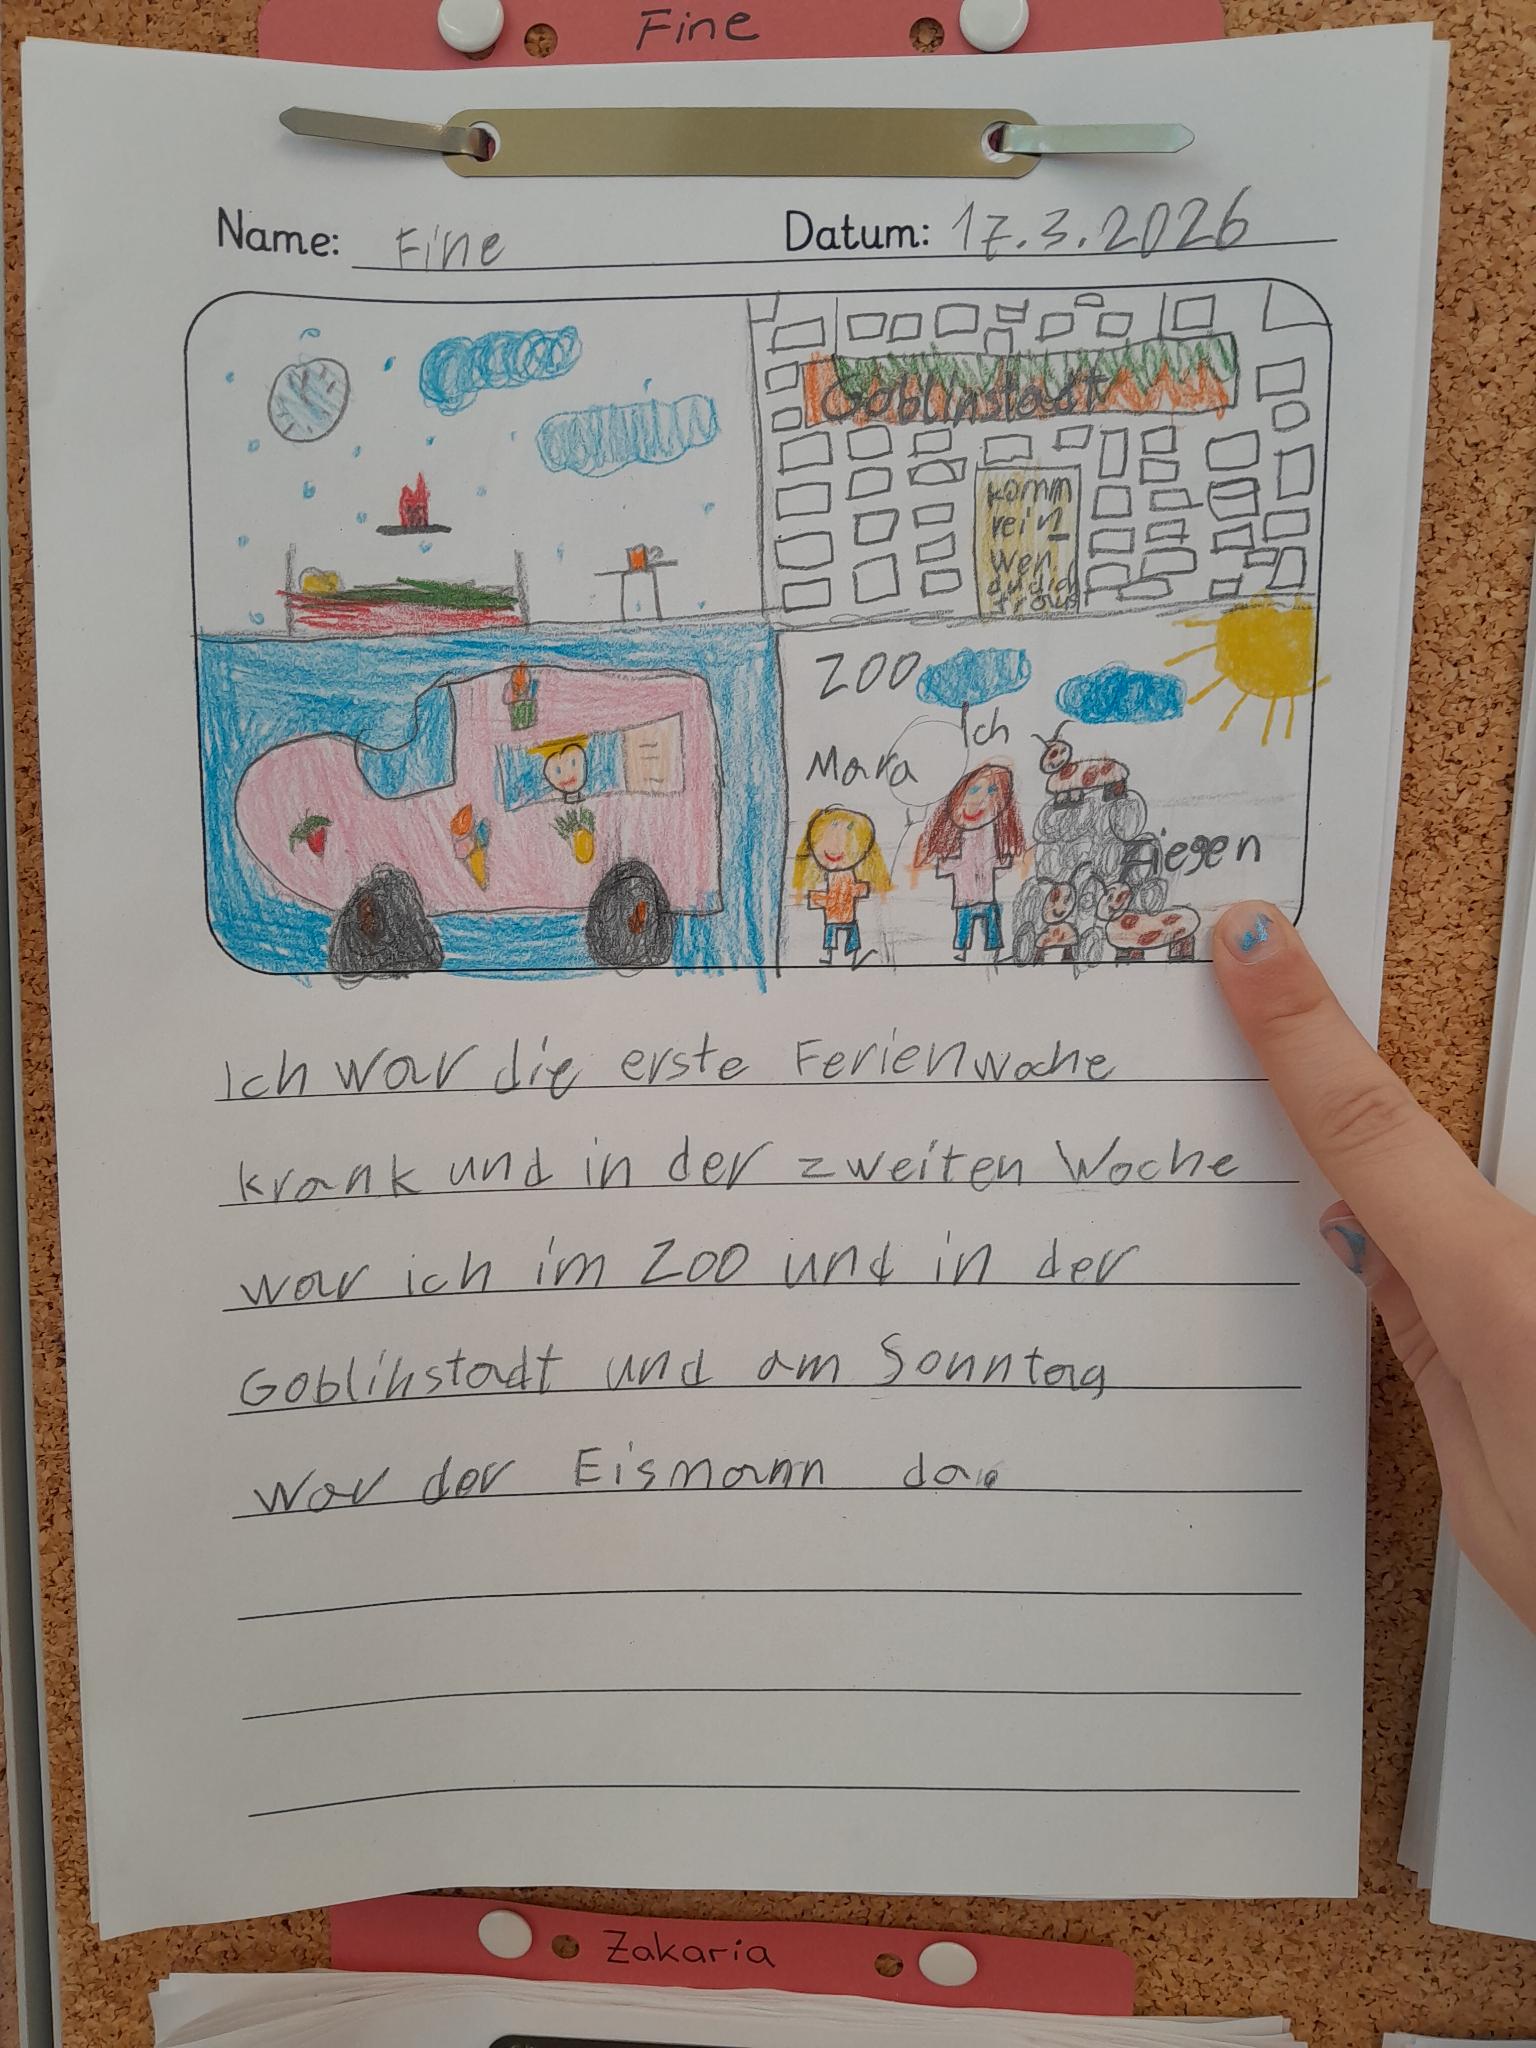 Fine
Name: Fine
Datum: 17.3.2026
Goblinstadt
komm
rein
wen
du dich
traust
ZOO
Ich
Mara
Ziegen
Ich war die erste Ferienwoche
krank und in der zweiten Woche
war ich im Zoo und in der
Goblinstadt und am Sonntag
war der Eismann da.
Zakaria